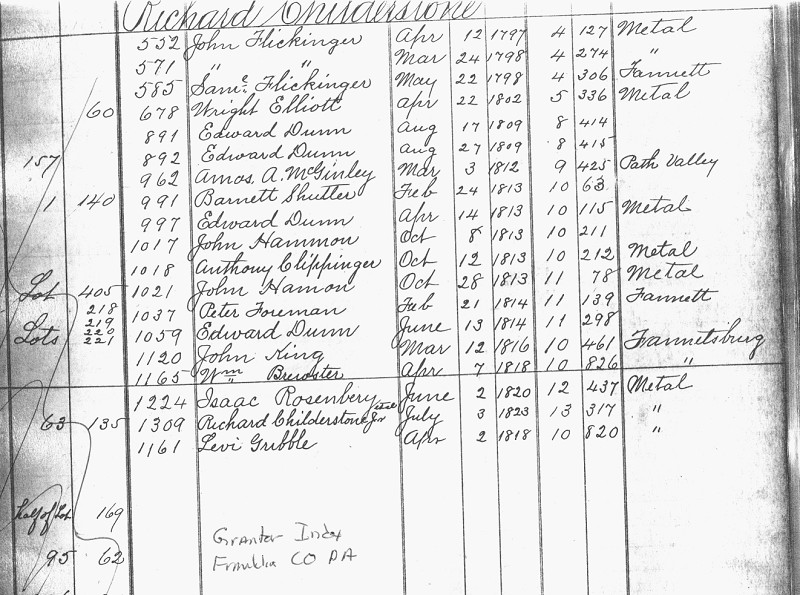 Richard Childerstone
552 John Flickinger Apr 12 1797 4 127 Metal
571 " " Mar 24 1798 4 274 "
585 Saml Flickinger May 22 1798 4 306 Fannett
60 678 Wright Elliott Apr 22 1802 5 336 Metal
891 Edward Dunn Aug 17 1809 8 414
892 Edward Dunn Aug 27 1809 8 415
157 962 Amos. A. McGinley Mar 3 1812 9 425 Path Valley
1 140 991 Barnett Shutler Feb 24 1813 10 63
997 Edward Dunn Apr 14 1813 10 115 Metal
1017 John Hammon Oct 8 1813 10 211
1018 Anthony Clippinger Oct 12 1813 10 212 Metal
Lot 405 1021 John Hamon Oct 28 1813 11 78 Metal
218 1037 Peter Foreman Feb 21 1814 11 139 Fannett
219
Lots 220 1059 Edward Dunn June 13 1814 11 298
221
1120 John King Mar 12 1816 10 461 Fannetsburg
1165 Wm " Brewster Apr 7 1818 10 826 "
1224 Isaac Rosenbery June 2 1820 12 437 Metal
63 135 1309 Richard Childerstone Jr etal July 3 1823 13 317 "
1161 Levi Gribble Apr 2 1818 10 820 "
half of Lot 169
Grantor Index
95 62 Franklin CO PA